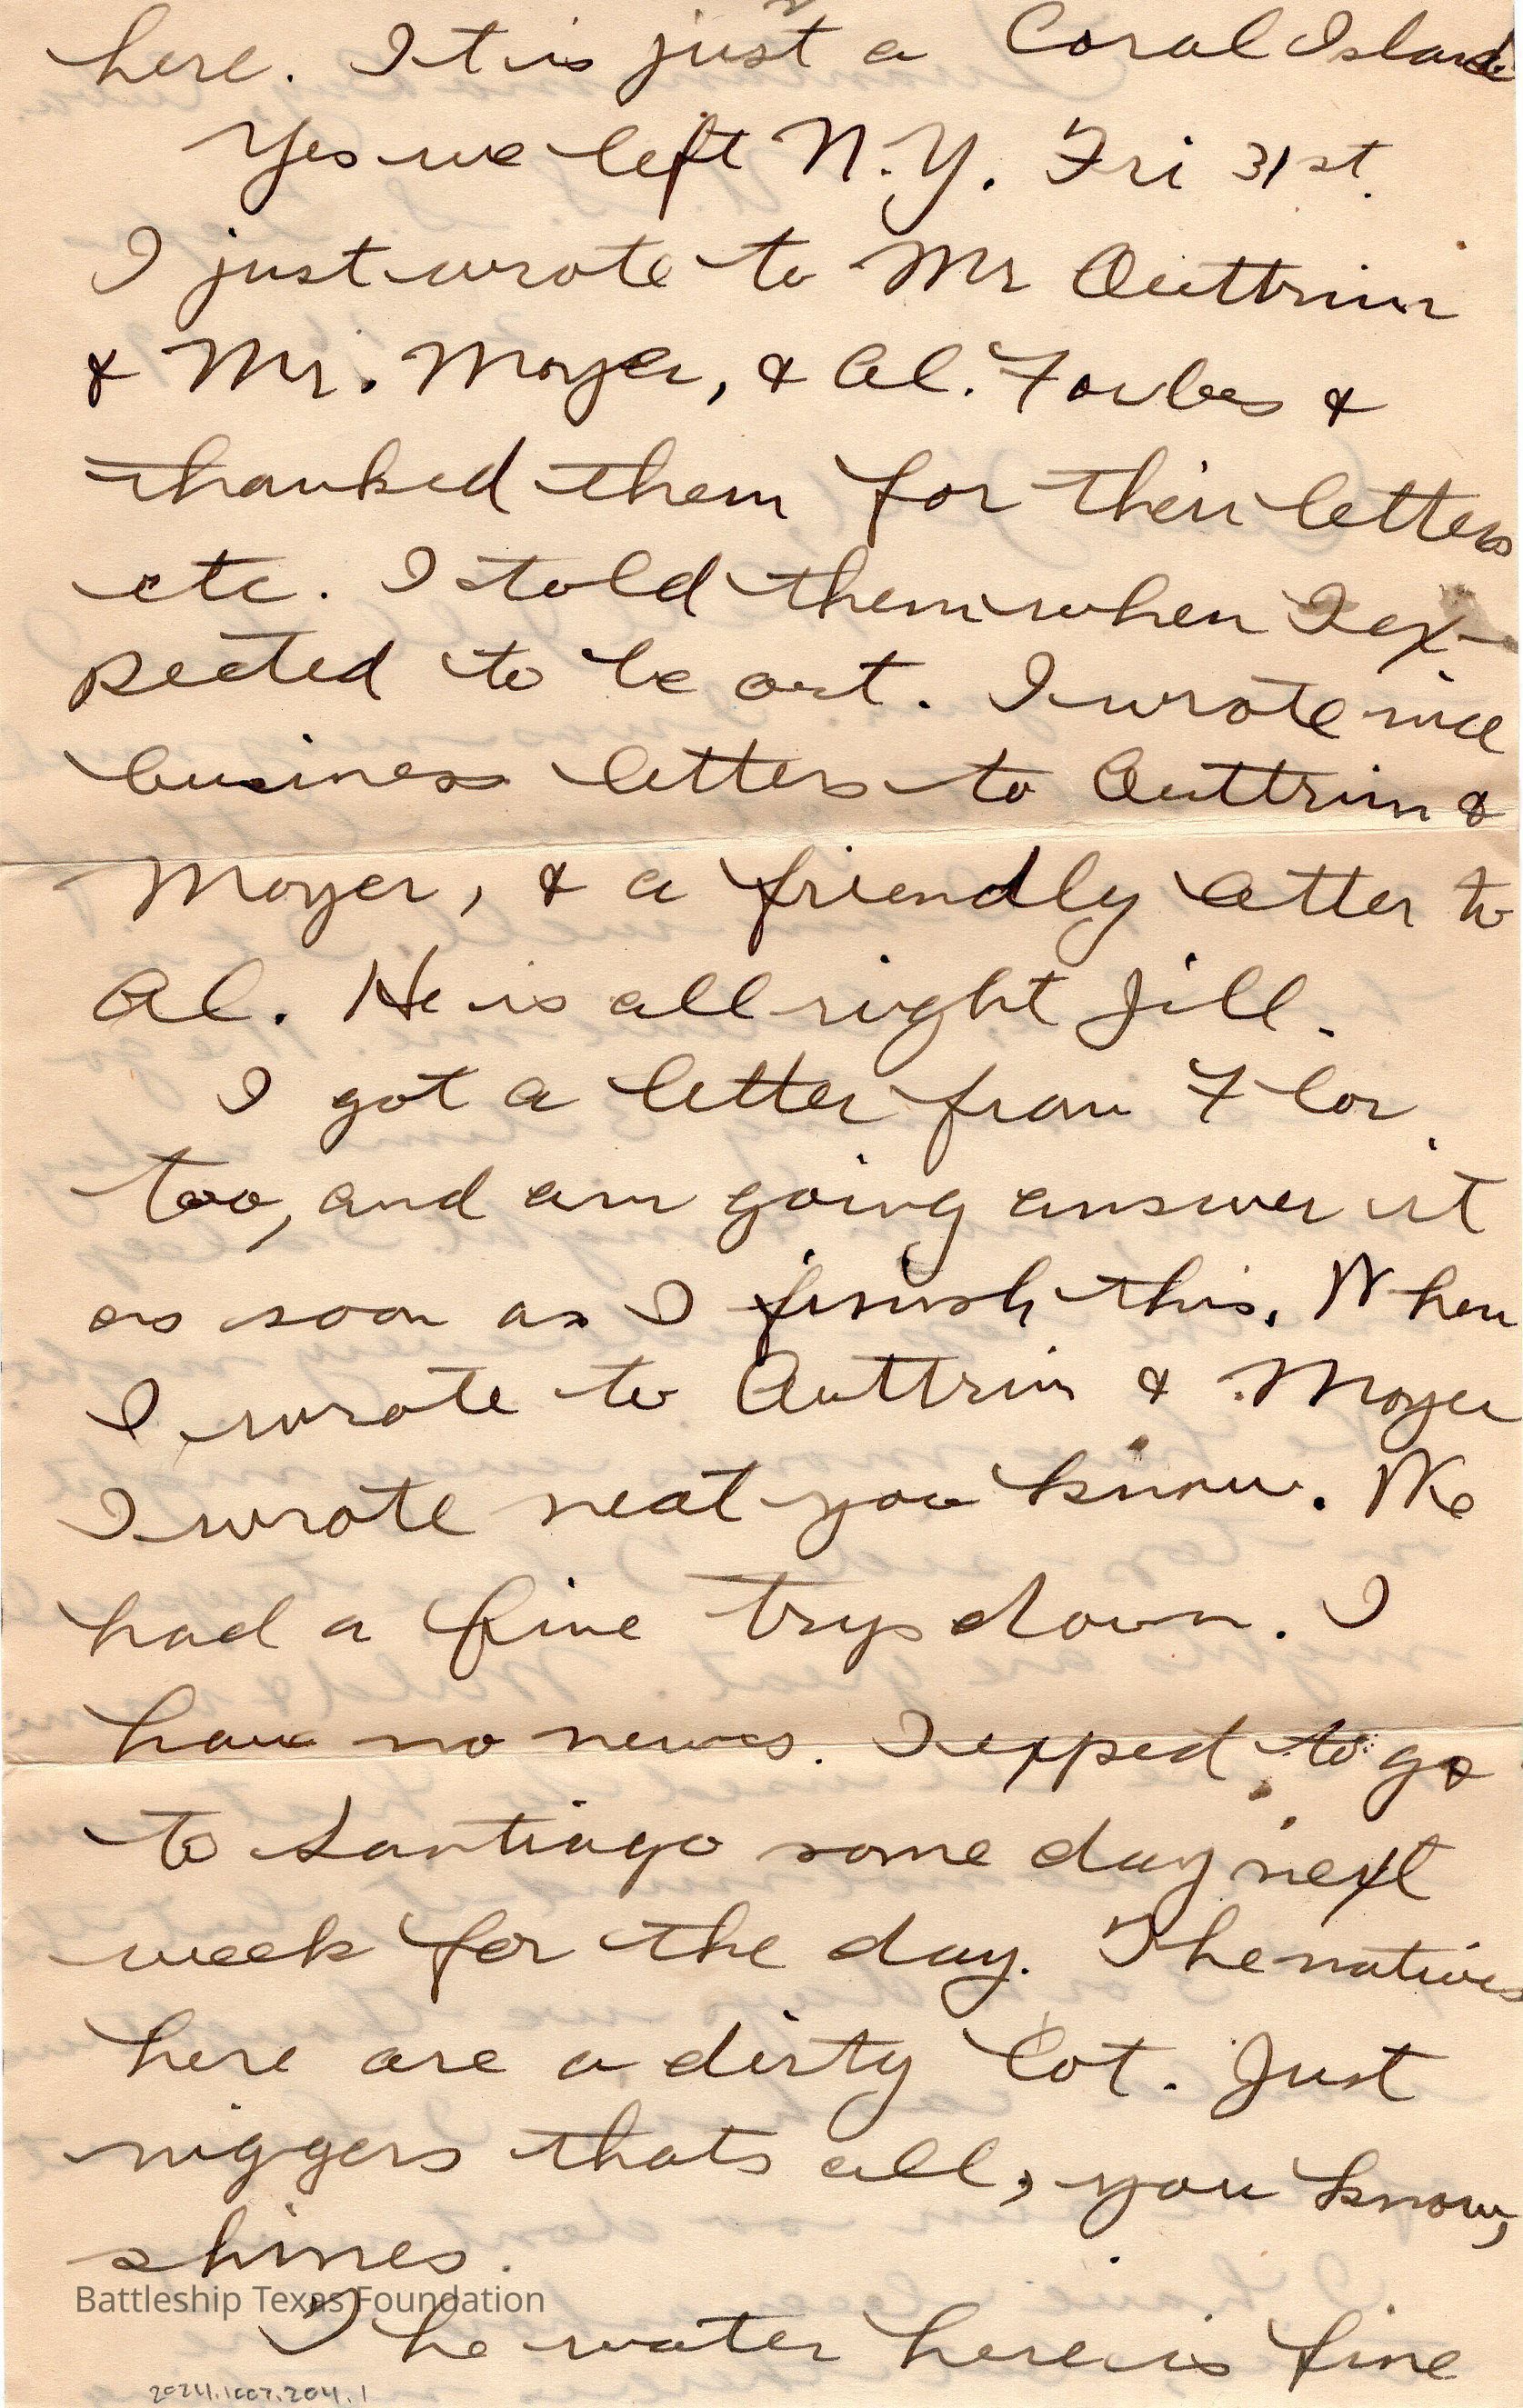 here. It is just a Coral Island
Yes we left N.Y. Fri 31st.
I just wrote to Mr Outtrim
& Mr. Moyer, & Al. Forbes &
thanked them for their letters
etc. I told them when I ex-
pected to be out. I wrote nice
business letters to Outtrim &
Moyer, & a friendly letter to
Al. He is all right Jill.
I got a letter from Flor.
too, and am going answer it
as soon as I finish this. When
I wrote to Outtrim & Moyer
I wrote neat you know. We
had a fine trip down. I
have no news. I expect to go
to Santiago some day next
week for the day. The natives
here are a dirty lot. Just
niggers thats all, you know,
shines.
Battleship Texas Foundation
The water here is fine
2024.1007.204.1